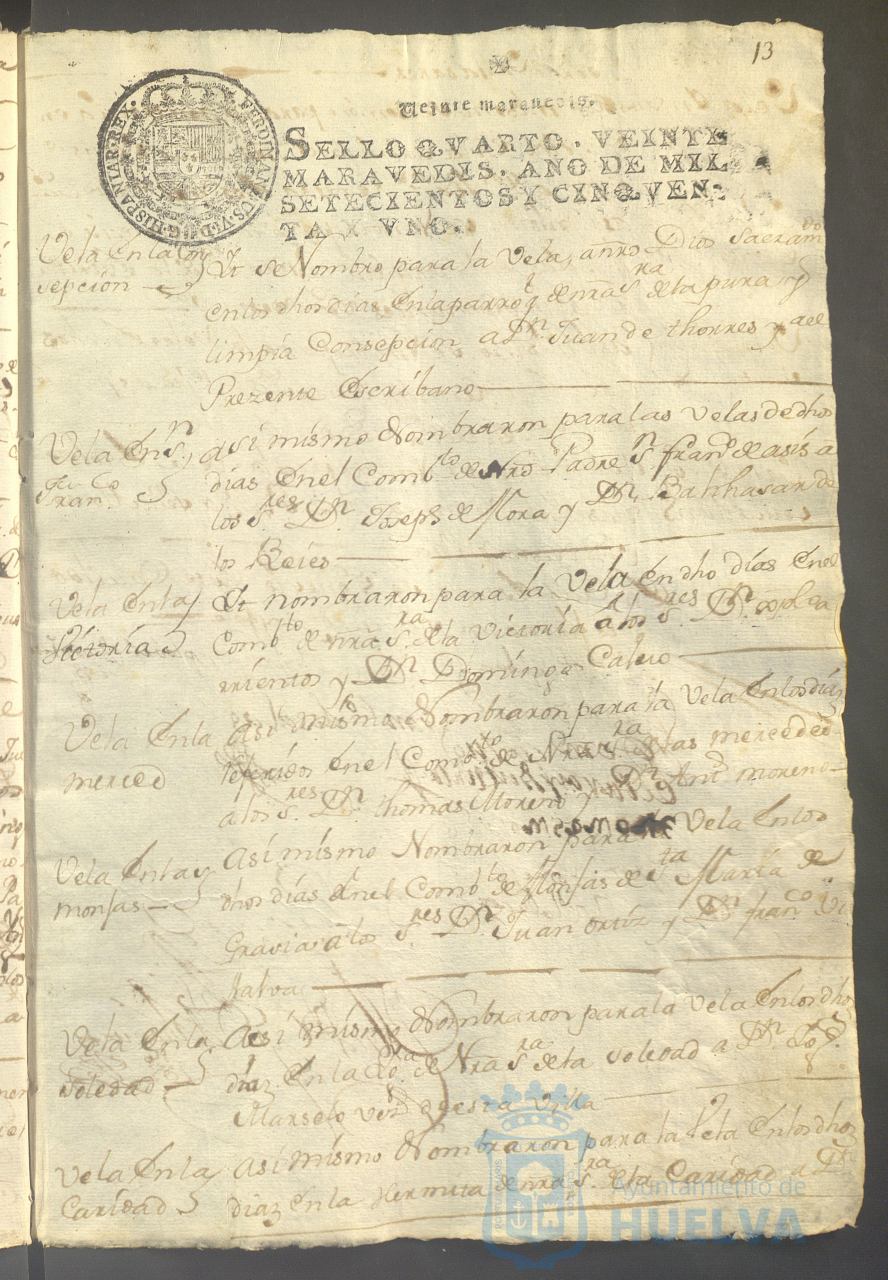 13
Veinte maravedis.
SELLO QVARTO, VEINTE
MARAVEDIS, AÑO DE MIL
SETECIENTOS Y CINQVEN-
TA Y VNO.
FERDINANDUS VI D G HISPANIAR REX
Vela En la Con
sepción
Yt se Nombro para la Vela, a nro Dios Sacramdo
en los dhos dias En la parroq de nra Sra de la pura y
limpia Consepcion a Dn Juan de thorres y a el
Prezente Escribano
Vela En Sn
Franco
asi mismo Nombraron para las Velas de dhos
dias En el Combto de Nro Padre Sn franco de asis a
los Sres Dn Joseph de Mora y Dn Balthasar de
los Reies
Vela En la
Victoria
Yt nombraron para la Vela En dho dias En el
Combto de nra Sra de la Victoria a los Sres Dn
rrientos y Dn Domingo Calvo
Vela En la
merced
Asi mismo Nombraron para la Vela En los dias
referidos En el Combto de Nra Sra de las mercedes
a los Sres Dn thomas Moreno y Dn Anto moreno
Vela En las
monjas
Asi mismo Nombraron para la Vela En los
dhos dias En el Combto de Monjas de Sta Maria de
Gracia a los Sres Dn Juan Ortiz y Dn franco
Vela En la
soledad
Asi mismo Nombraron para la Vela En los dhos
diaz En la de Nra Sra de la soledad a Dn
Marselo vezo de esta Villa
Vela En la
Caridad
Asi mismo Nombraron para la Vela En los dhos
diaz En la Hermita de nra Sra de la Caridad a Dn
Ayuntamiento de
HUELVA